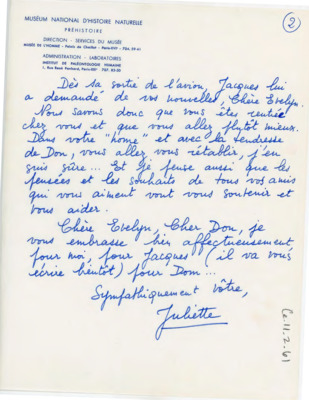 MUSÉUM NATIONAL D'HISTOIRE NATURELLE
PRÉHISTOIRE
DIRECTION - SERVICES DU MUSÉE
MUSÉE DE L'HOMME - Palais de Chaillot - Paris-XVIᵉ
ADMINISTRATION - LABORATOIRES
INSTITUT DE PALÉONTOLOGIE HUMAINE
1, Rue René Panhard, Paris-XIIIᵉ
2
Dès sa sortie de l'avion, Jacques lui
a demandé de vos nouvelles, Chère Evelyn.
Nous savons donc que vous êtes rentrée
chez vous et que vous allez plutôt mieux.
Dans votre "home" et avec la tendresse
de Don, vous allez vous rétablir, j'en
suis sûre... Et je pense aussi que les
pensées et les souhaits de tous vos amis
qui vous aiment vont vous soutenir et
vous aider.
Chère Evelyn, Cher Don, je
vous embrasse bien affectueusement
pour moi, pour Jacques (il va vous
écrire bientôt) pour Don...
Sympathiquement vôtre,
Juliette